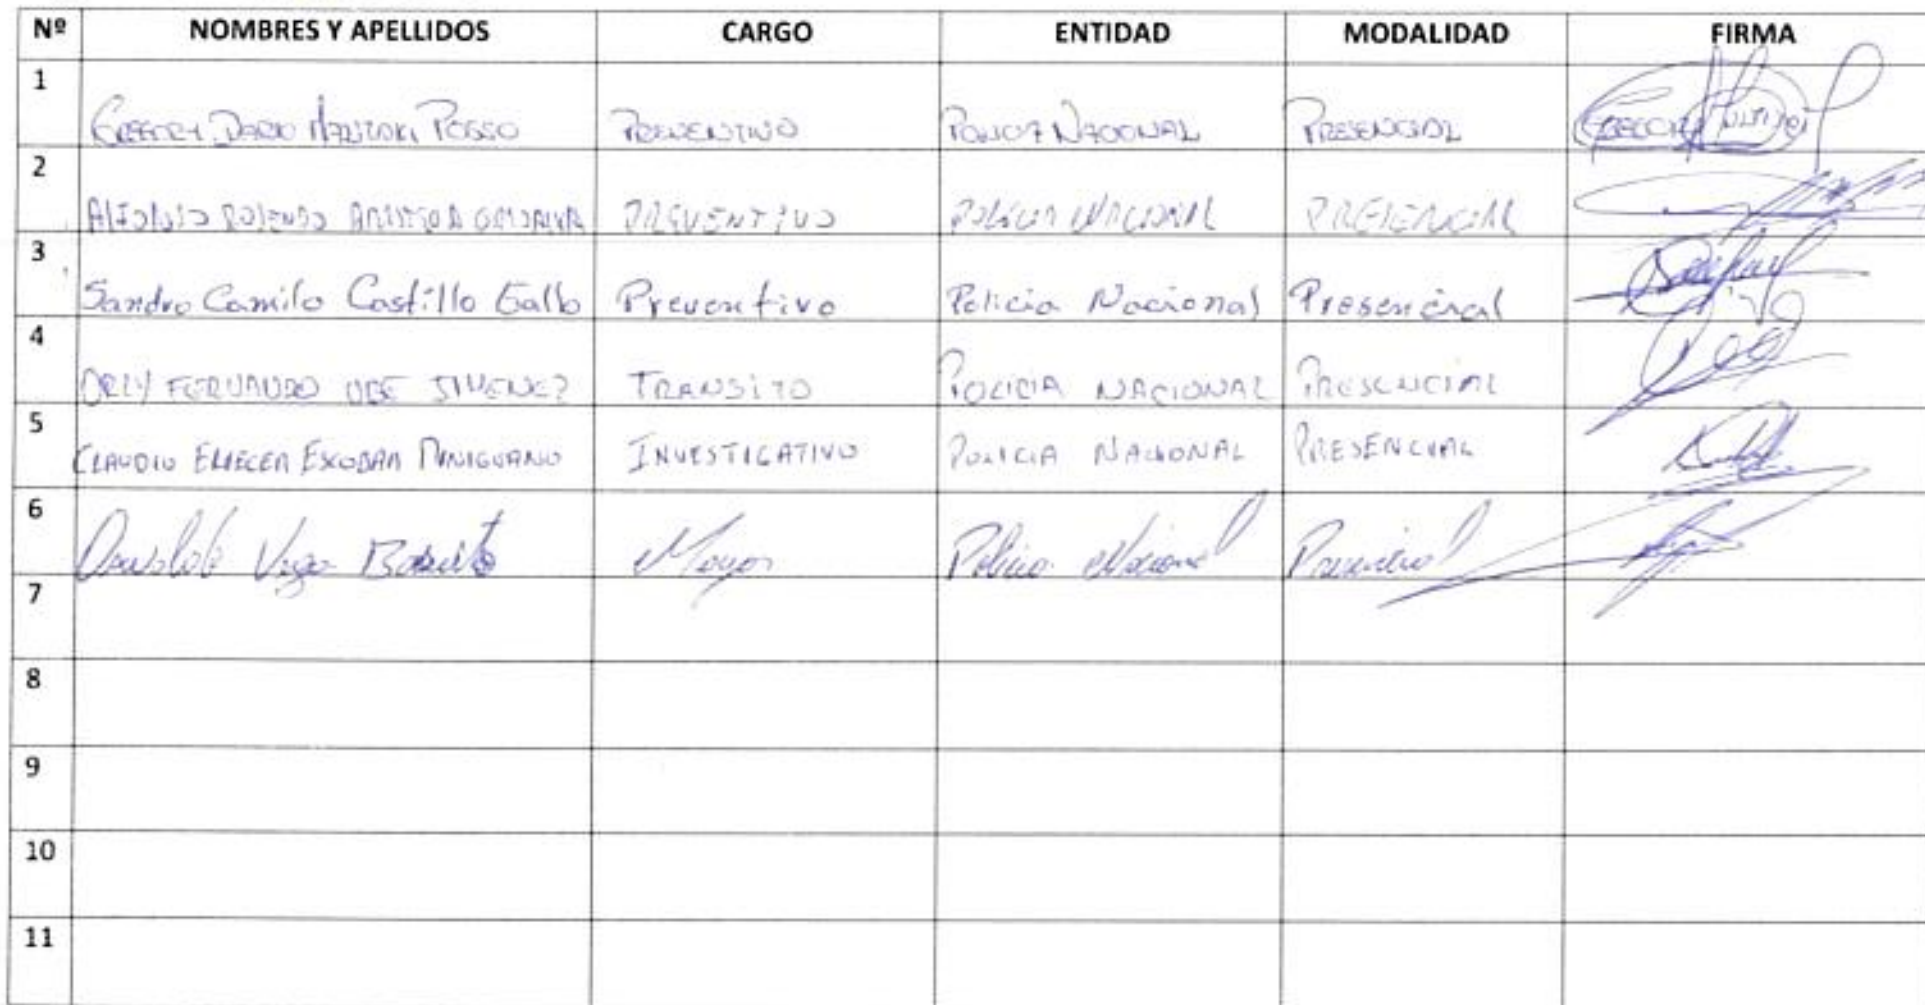 Nº NOMBRES Y APELLIDOS CARGO ENTIDAD MODALIDAD FIRMA
1 Gregory Dario Posso Preventivo Policia Nacional Presencial
2 Preventivo Policia Nacional Presencial
3 Sandro Camilo Castillo Gallo Preventivo Policia Nacional Presencial
4 Orly Fernando Jimenez Transito Policia Nacional Presencial
5 Claudio Eliecer Escobar Investigativo Policia Nacional Presencial
6 Vega Mayor Policia Nacional Presencial
7
8
9
10
11